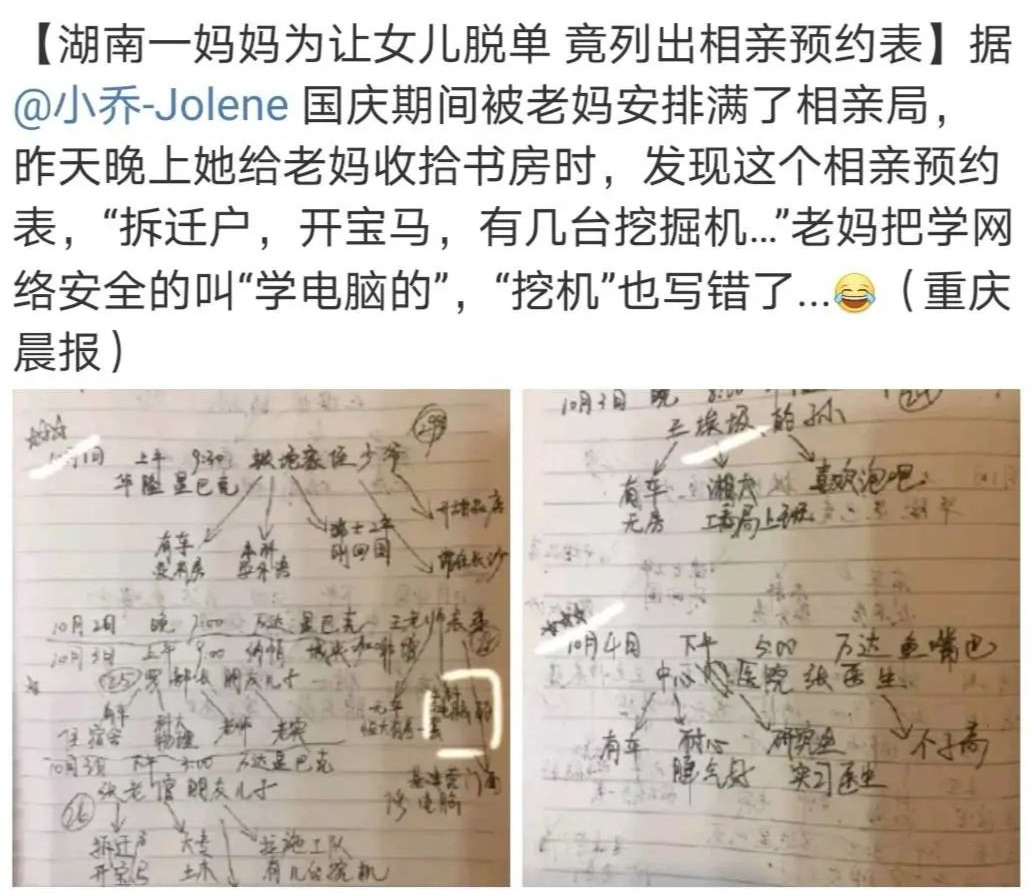 【湖南一妈妈为让女儿脱单 竟列出相亲预约表】据
@小乔-Jolene 国庆期间被老妈安排满了相亲局，
昨天晚上她给老妈收拾书房时，发现这个相亲预约
表，“拆迁户，开宝马，有几台挖掘机...”老妈把学网
络安全的叫“学电脑的”，“挖机”也写错了...😂（重庆
晨报）
10月1日 上午 9:30
华隆星巴克
有车 本科 硕士2年
刚回国
10月2日 晚 7:00 万达星巴克 王老师表弟
10月3日 上午 9:00
25 朋友儿子
有车 科大 老师 老实
住宿舍 物理
10月3日 下午 3:00 万达星巴克
张老官朋友儿子
26
拆迁户 大专
开宝马 土木 有几台挖机
10月3日 晚 8:00
有车 湘大 喜欢泡吧
无房
10月4日 下午 5:00 万达鱼嘴巴
中心医院 张医生
有车 耐心 研究生 个子高
脾气好 实习医生